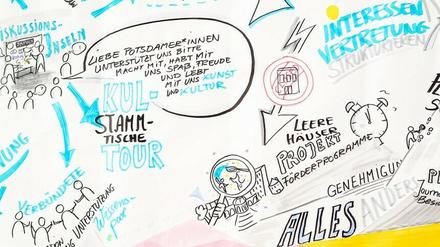 INSELN
LIEBE POTSDAMER*INNEN
UNTERSTÜTZT UNS BITTE
MACHT MIT, HABT MIT
UNS SPAß, FREUDE
UND LEBT
MIT UNS KUNST
UND KULTUR
KUL-
STAMM-
TISCHE
TOUR
INTERESSEN
VERTRETUNG
STRUKTURIEREN
LEERE
HÄUSER
PROJEKT
FÖRDERPROGRAMME
GENEHMIGUN
VERBÜNDETE
UNTERSTÜTZUNG
ALLES ANDERS